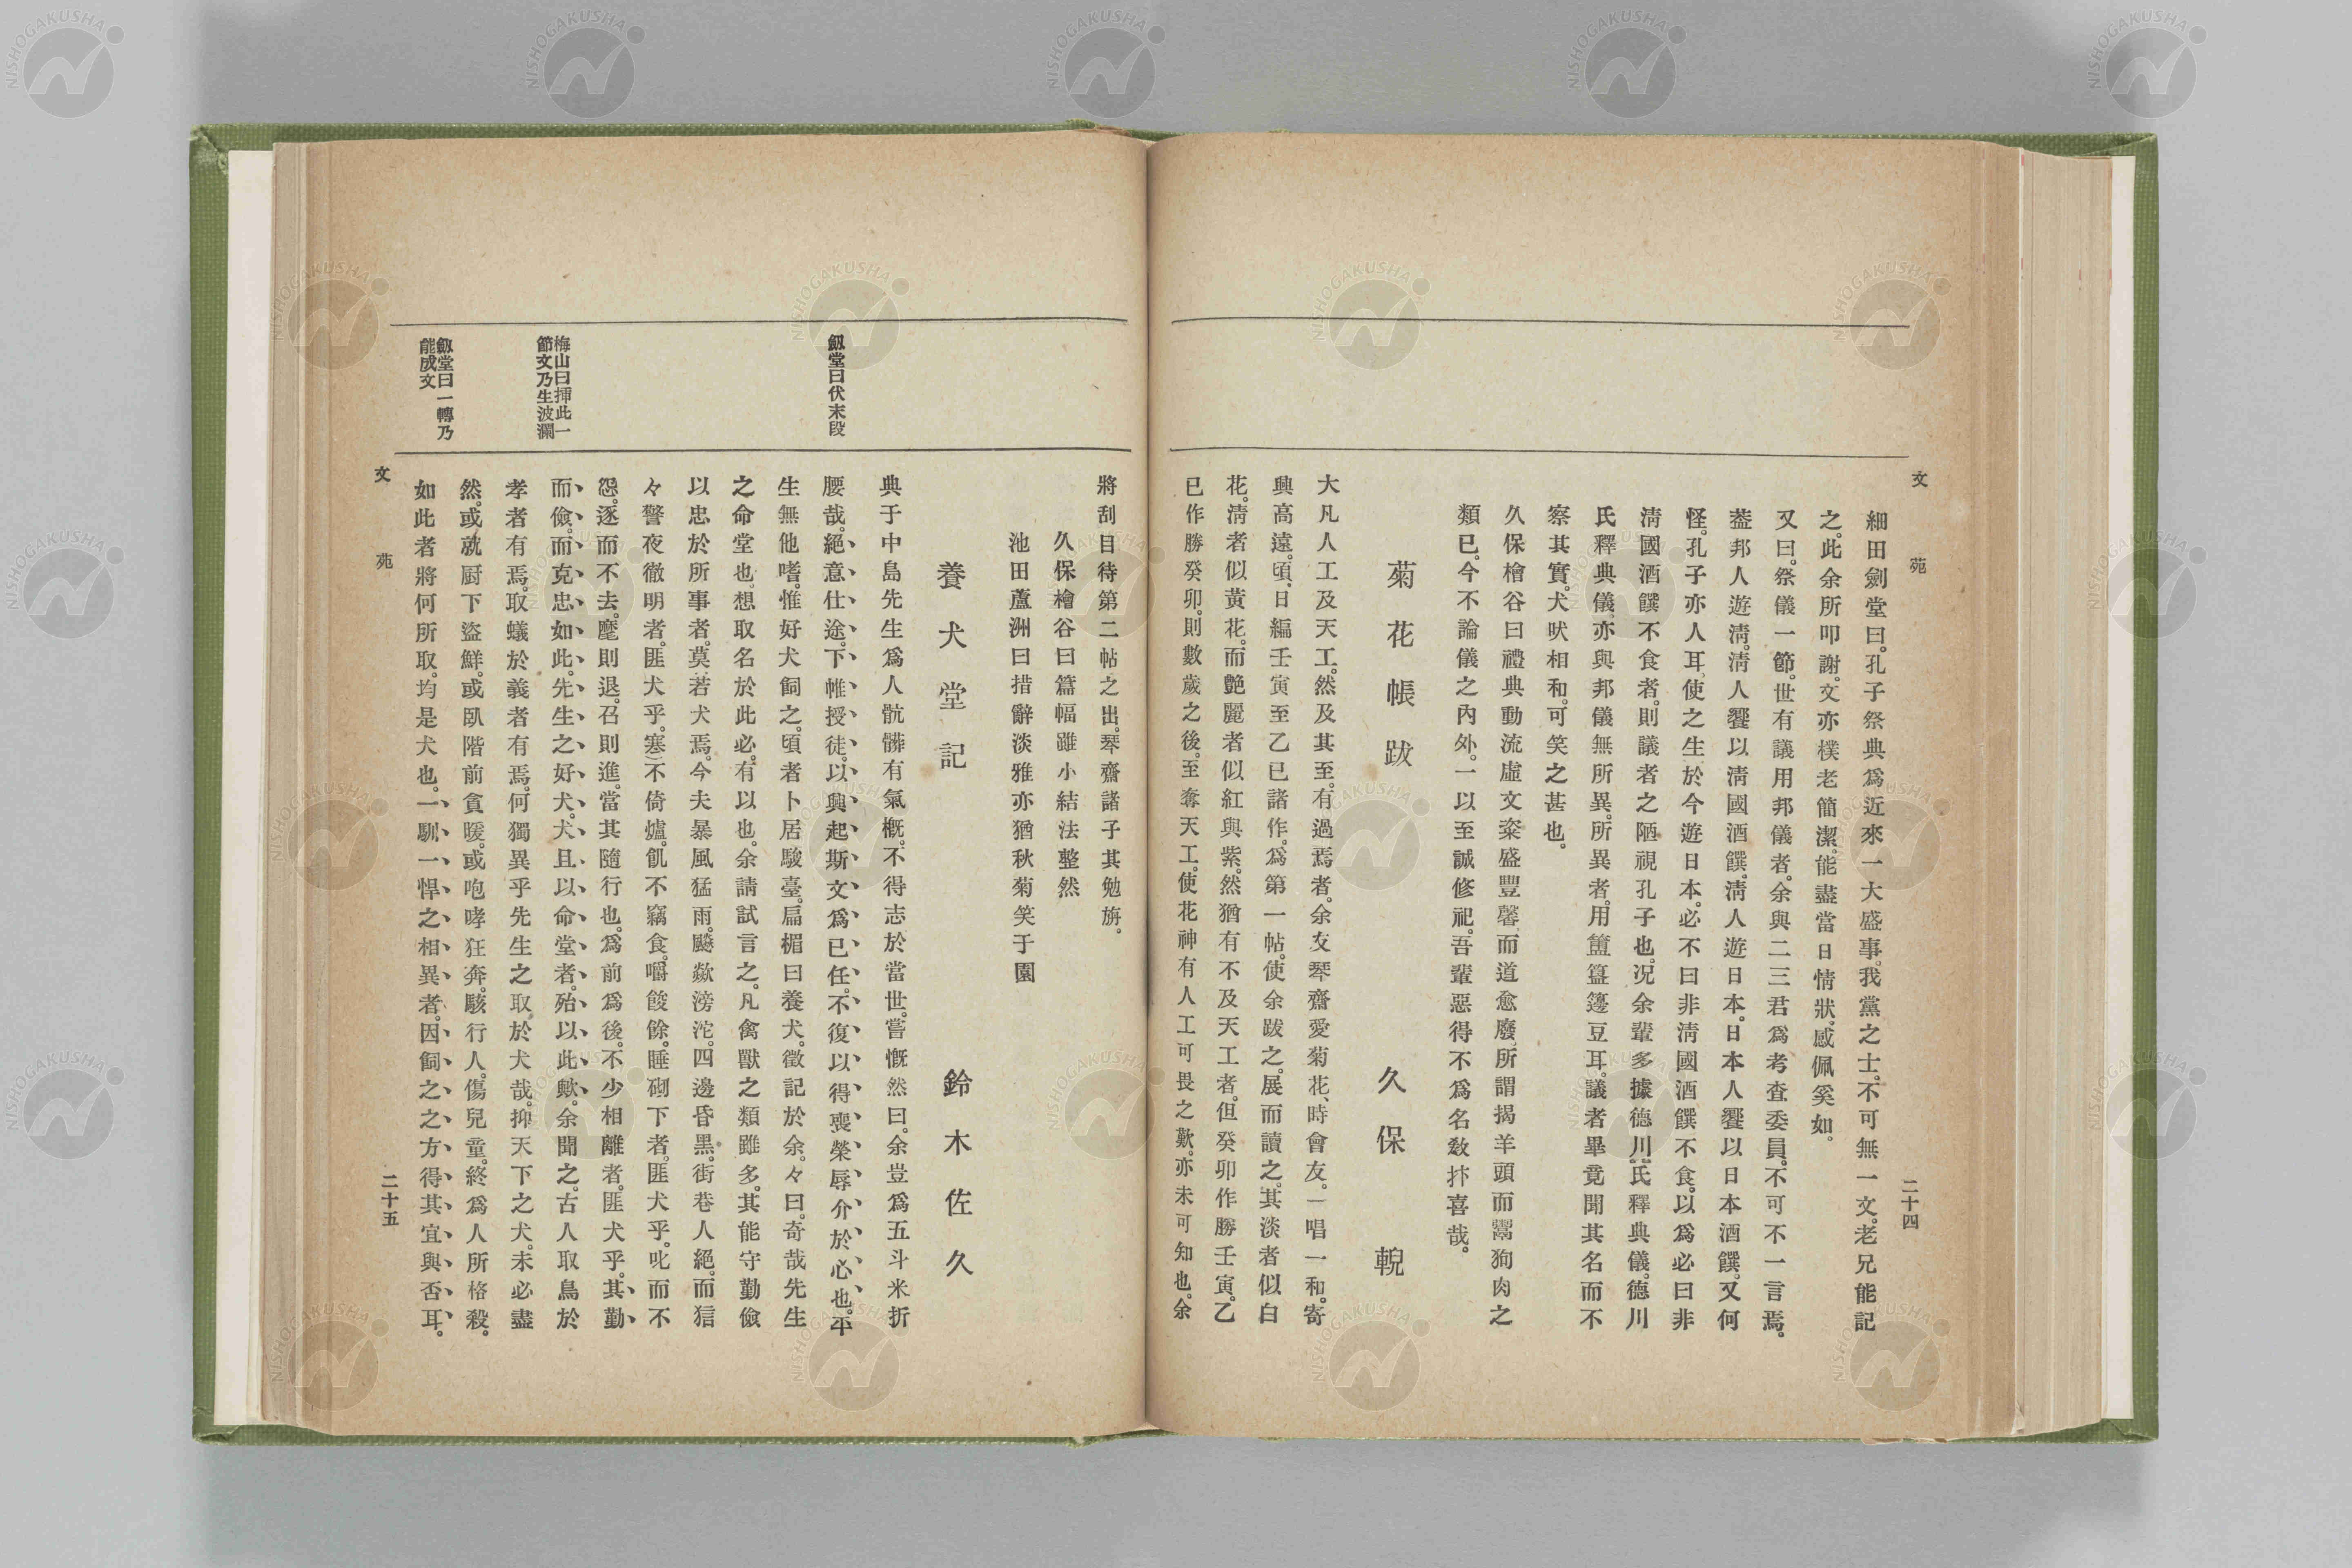 文苑
二十四
細田劍堂曰。孔子祭典爲近來一大盛事。我黨之士。不可無一文。老兄能記
之。此余所叩謝。文亦樸老簡潔。能盡當日情狀。感佩奚如。
又曰。祭儀一節。世有議用邦儀者。余與二三君爲考査委員。不可不一言焉。
葢邦人遊淸。淸人饗以淸國酒饌。淸人遊日本。日本人饗以日本酒饌。又何
怪。孔子亦人耳、使之生於今遊日本。必不曰非淸國酒饌不食。以爲必曰非
淸國酒饌不食者。則議者之陋視孔子也。況余輩多據德川氏釋典儀。德川
氏釋典儀。亦與邦儀無所異。所異者。用簠簋籩豆耳。議者畢竟聞其名而不
察其實。犬吠相和。可笑之甚也。
久保檜谷曰禮典動流虛文粢盛豐馨而道愈廢。所謂揭羊頭而鬻狗肉之
類已。今不論儀之內外。一以至誠修祀。吾輩惡得不爲名敎抃喜哉。
菊花帳跋
久保輗
大凡人工及天工。然及其至。有過焉者。余友琴齋愛菊花、時會友。一唱一和。寄
興高遠。頃、日編壬寅至乙巳諸作。爲第一帖。使余跋之。展而讀之。其淡者似白
花。淸者似黃花。而艶麗者似紅與紫。然猶有不及天工者。但癸卯作勝壬寅。乙
巳作勝癸卯。則數歲之後。至奪天工。使花神有人工可畏之歎。亦未可知也。余
將刮目待第二帖之出。琴齋諸子其勉旃。
久保檜谷曰篇幅雖小結法整然
池田蘆洲曰措辭淡雅亦猶秋菊笑于園
養犬堂記
鈴木佐久
典于中島先生爲人骯髒有氣槪。不得志於當世。嘗慨然曰。余豈爲五斗米折
腰哉。絕意仕途。下帷授徒。以興起斯文爲已任。不復以得喪榮辱介於心也。平
生無他嗜。惟好犬飼之。頃者卜居駿臺。扁楣曰養犬。徵記於余。々曰。奇哉先生
之命堂也。想取名於此必。有以也。余請試言之。凡禽獸之類雖多。其能守勤儉
以忠於所事者。莫若犬焉。今夫暴風猛雨。飈歘滂沱。四邊昏黑。街巷人絕。而狺
々警夜徹明者。匪犬乎。塞)不倚爐。飢不竊食。嚼餕餘。睡砌下者。匪犬乎。叱而不
怨。逐而不去。麾則退。召則進。當其隨行也。爲前爲後。不少相離者。匪犬乎。其勤
而儉。而克忠如此。先生之好犬。犬且以命堂者。殆以此歟。余聞之。古人取鳥於
孝者有焉。取蟻於義者有焉。何獨異乎先生之取於犬哉。抑天下之犬。未必盡
然。或就厨下盜鮮。或臥階前貪暖。或咆哮狂奔。駭行人。傷兒童。終爲人所格殺。
如此者將何所取。均是犬也。一馴一悍之相異者。因飼之之方得其宜與否耳。
劔堂曰伏末段
梅山曰揷此一
節文乃生波瀾
劔堂曰一轉乃
能成文
文苑
二十五
NISHOGAKUSHA